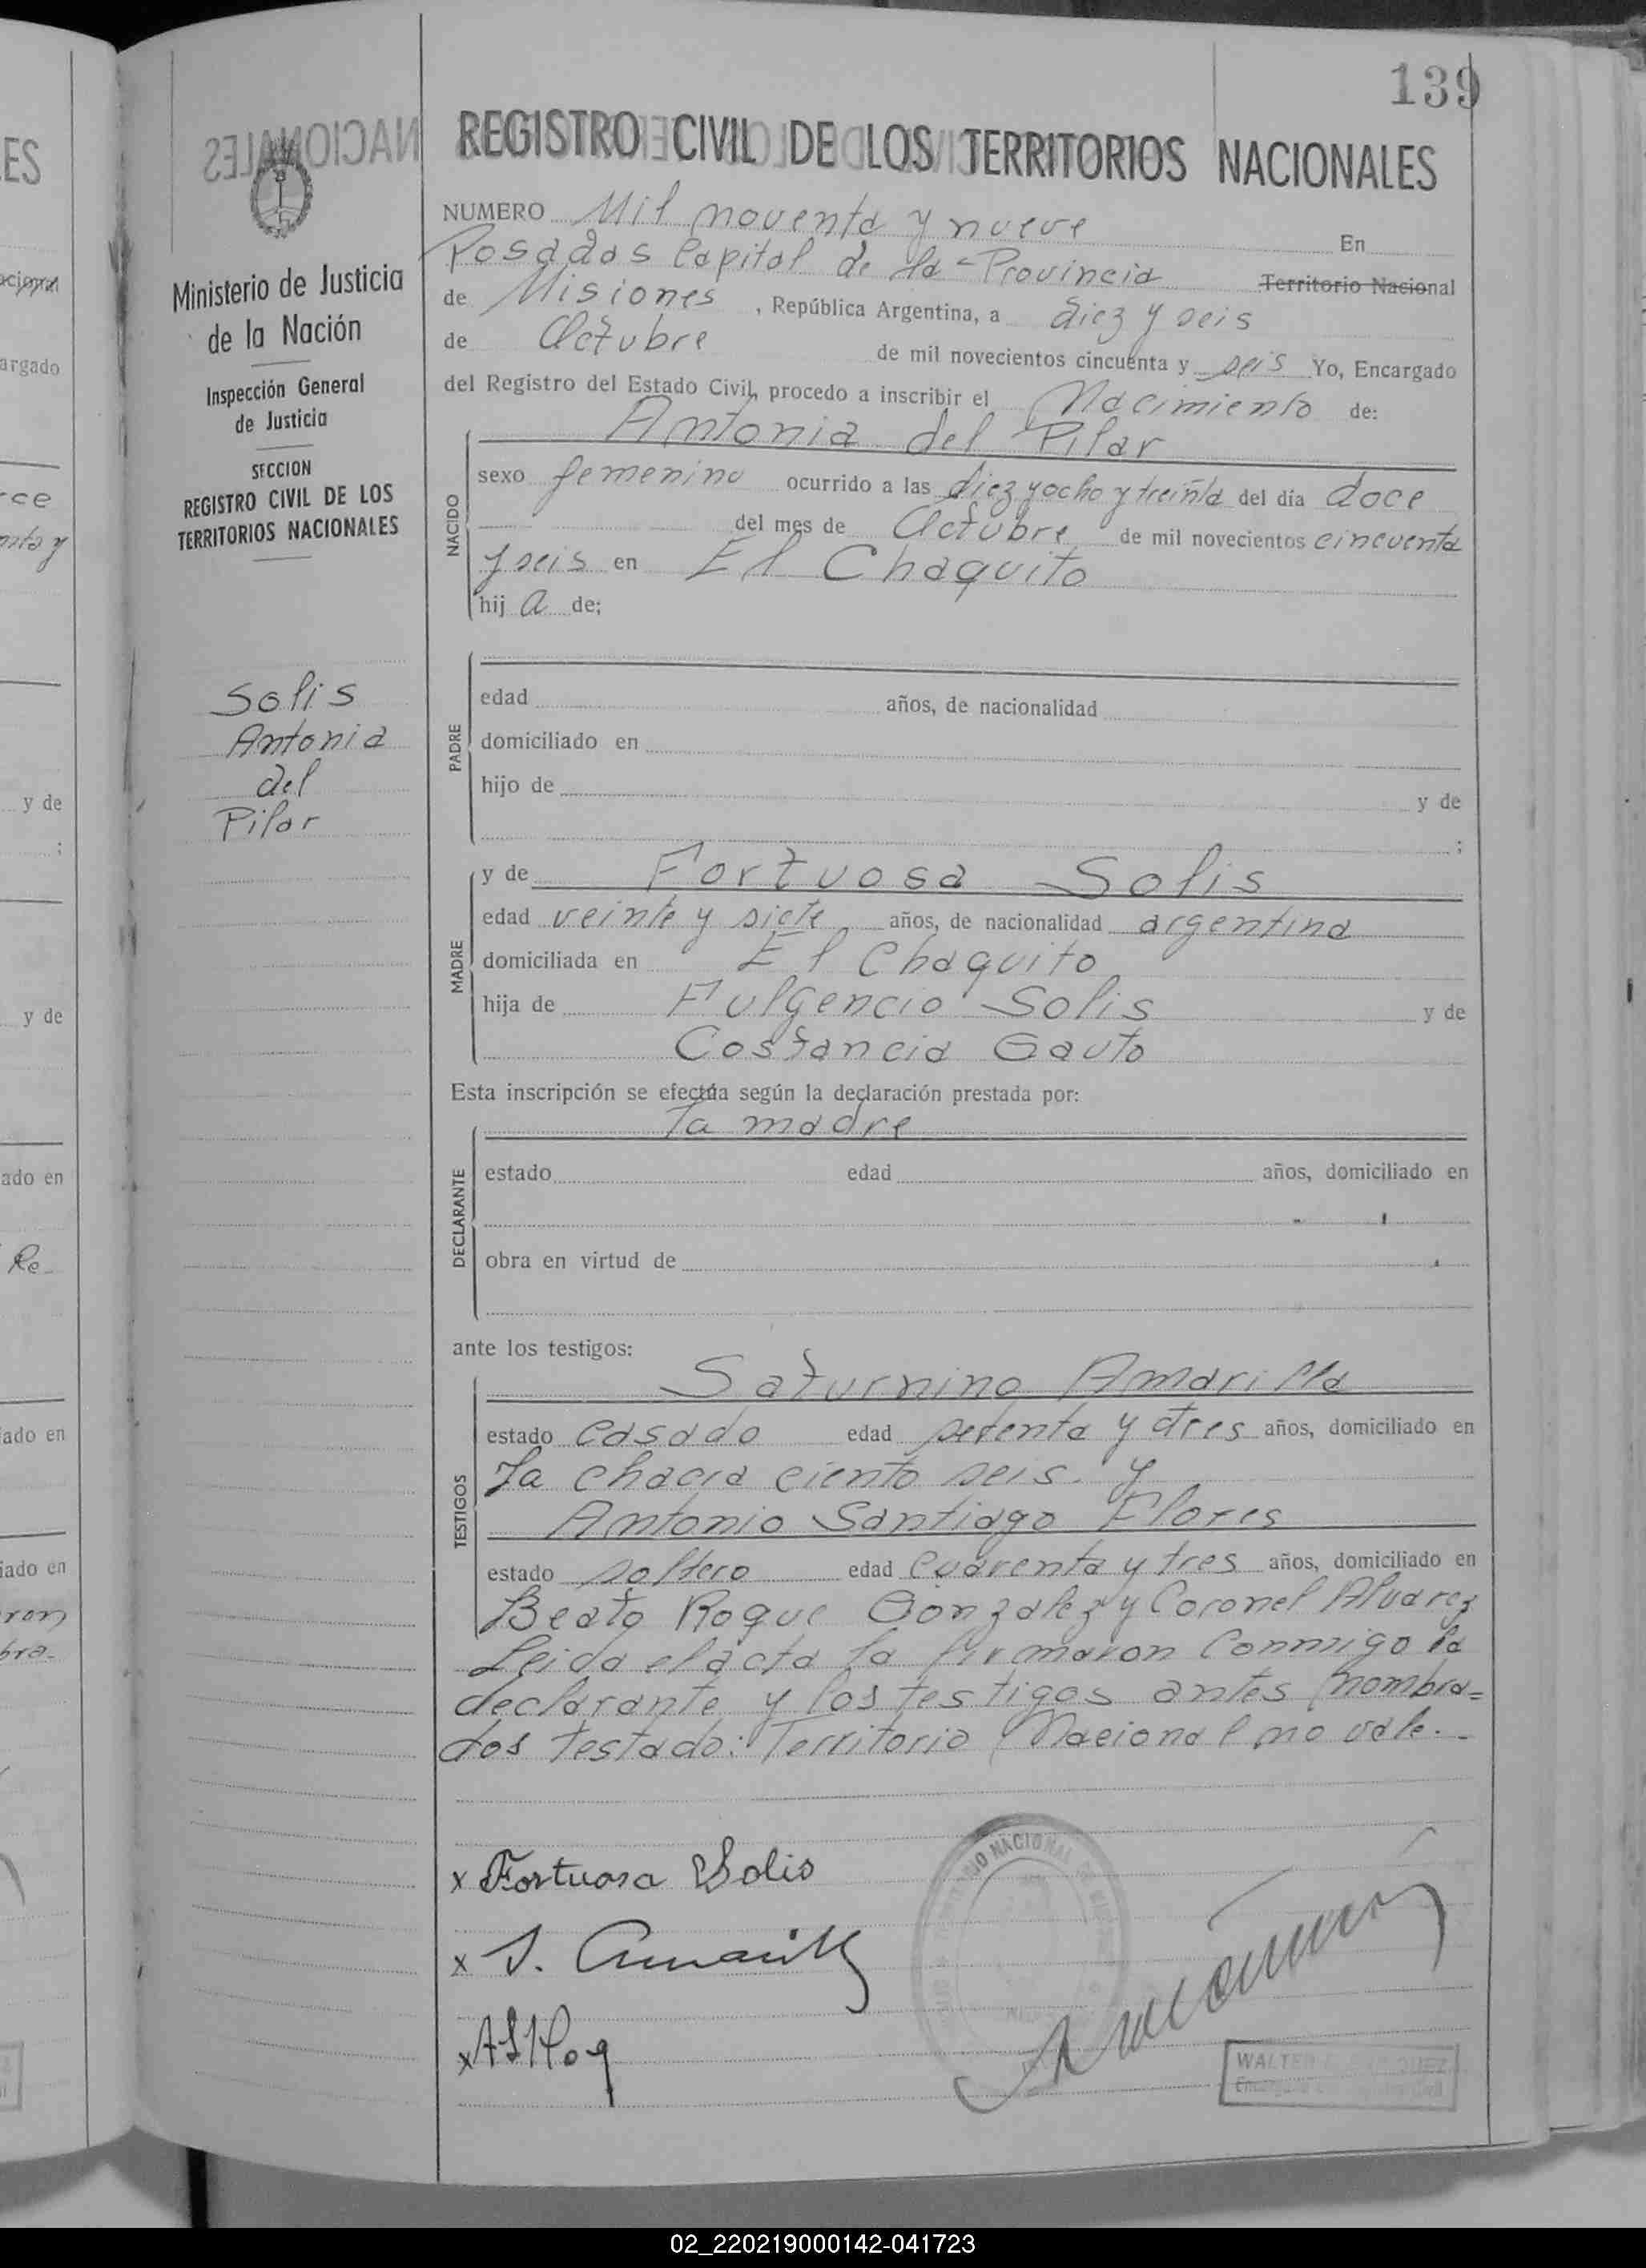 139
REGISTRO CIVIL DE LOS TERRITORIOS NACIONALES
NUMERO Mil noventa y nueve En
Posadas Capital de la Provincia Territorio Nacional
de Misiones, República Argentina, a diez y seis
de Octubre de mil novecientos cincuenta y seis Yo, Encargado
del Registro del Estado Civil, procedo a inscribir el Nacimiento de:
Antonia del Pilar
NACIDO
sexo femenino ocurrido a las diez y ocho y treinta del día doce
del mes de Octubre de mil novecientos cincuenta
y seis en El Chaquito
hij a de;
PADRE
edad años, de nacionalidad
domiciliado en
hijo de y de
;
MADRE
y de Fortuosa Solis
edad veinte y siete años, de nacionalidad argentina
domiciliada en El Chaquito
hija de Fulgencio Solis y de
Costancia Gauto
Esta inscripción se efectúa según la declaración prestada por:
la madre
DECLARANTE
estado edad años, domiciliado en
obra en virtud de
ante los testigos:
TESTIGOS
Saturnino Amarilla
estado casado edad setenta y tres años, domiciliado en
la chacra ciento seis. y
Antonio Santiago Flores
estado soltero edad cuarenta y tres años, domiciliado en
Beato Roque Gonzalez y Coronel Alvarez
Leida el acta la firmaron conmigo la
declarante y los testigos antes nombra=
dos Testado: Territorio Nacional no vale.-
x Fortuosa Solis
x S. Amarilla
x
NACIONAL
WALTER
Ministerio de Justicia
de la Nación
Inspección General
de Justicia
SECCION
REGISTRO CIVIL DE LOS
TERRITORIOS NACIONALES
Solis
Antonia
del
Pilar
ES
argado
y de
;
y de
ado en
Re
iado en
iado en
02_220219000142-041723